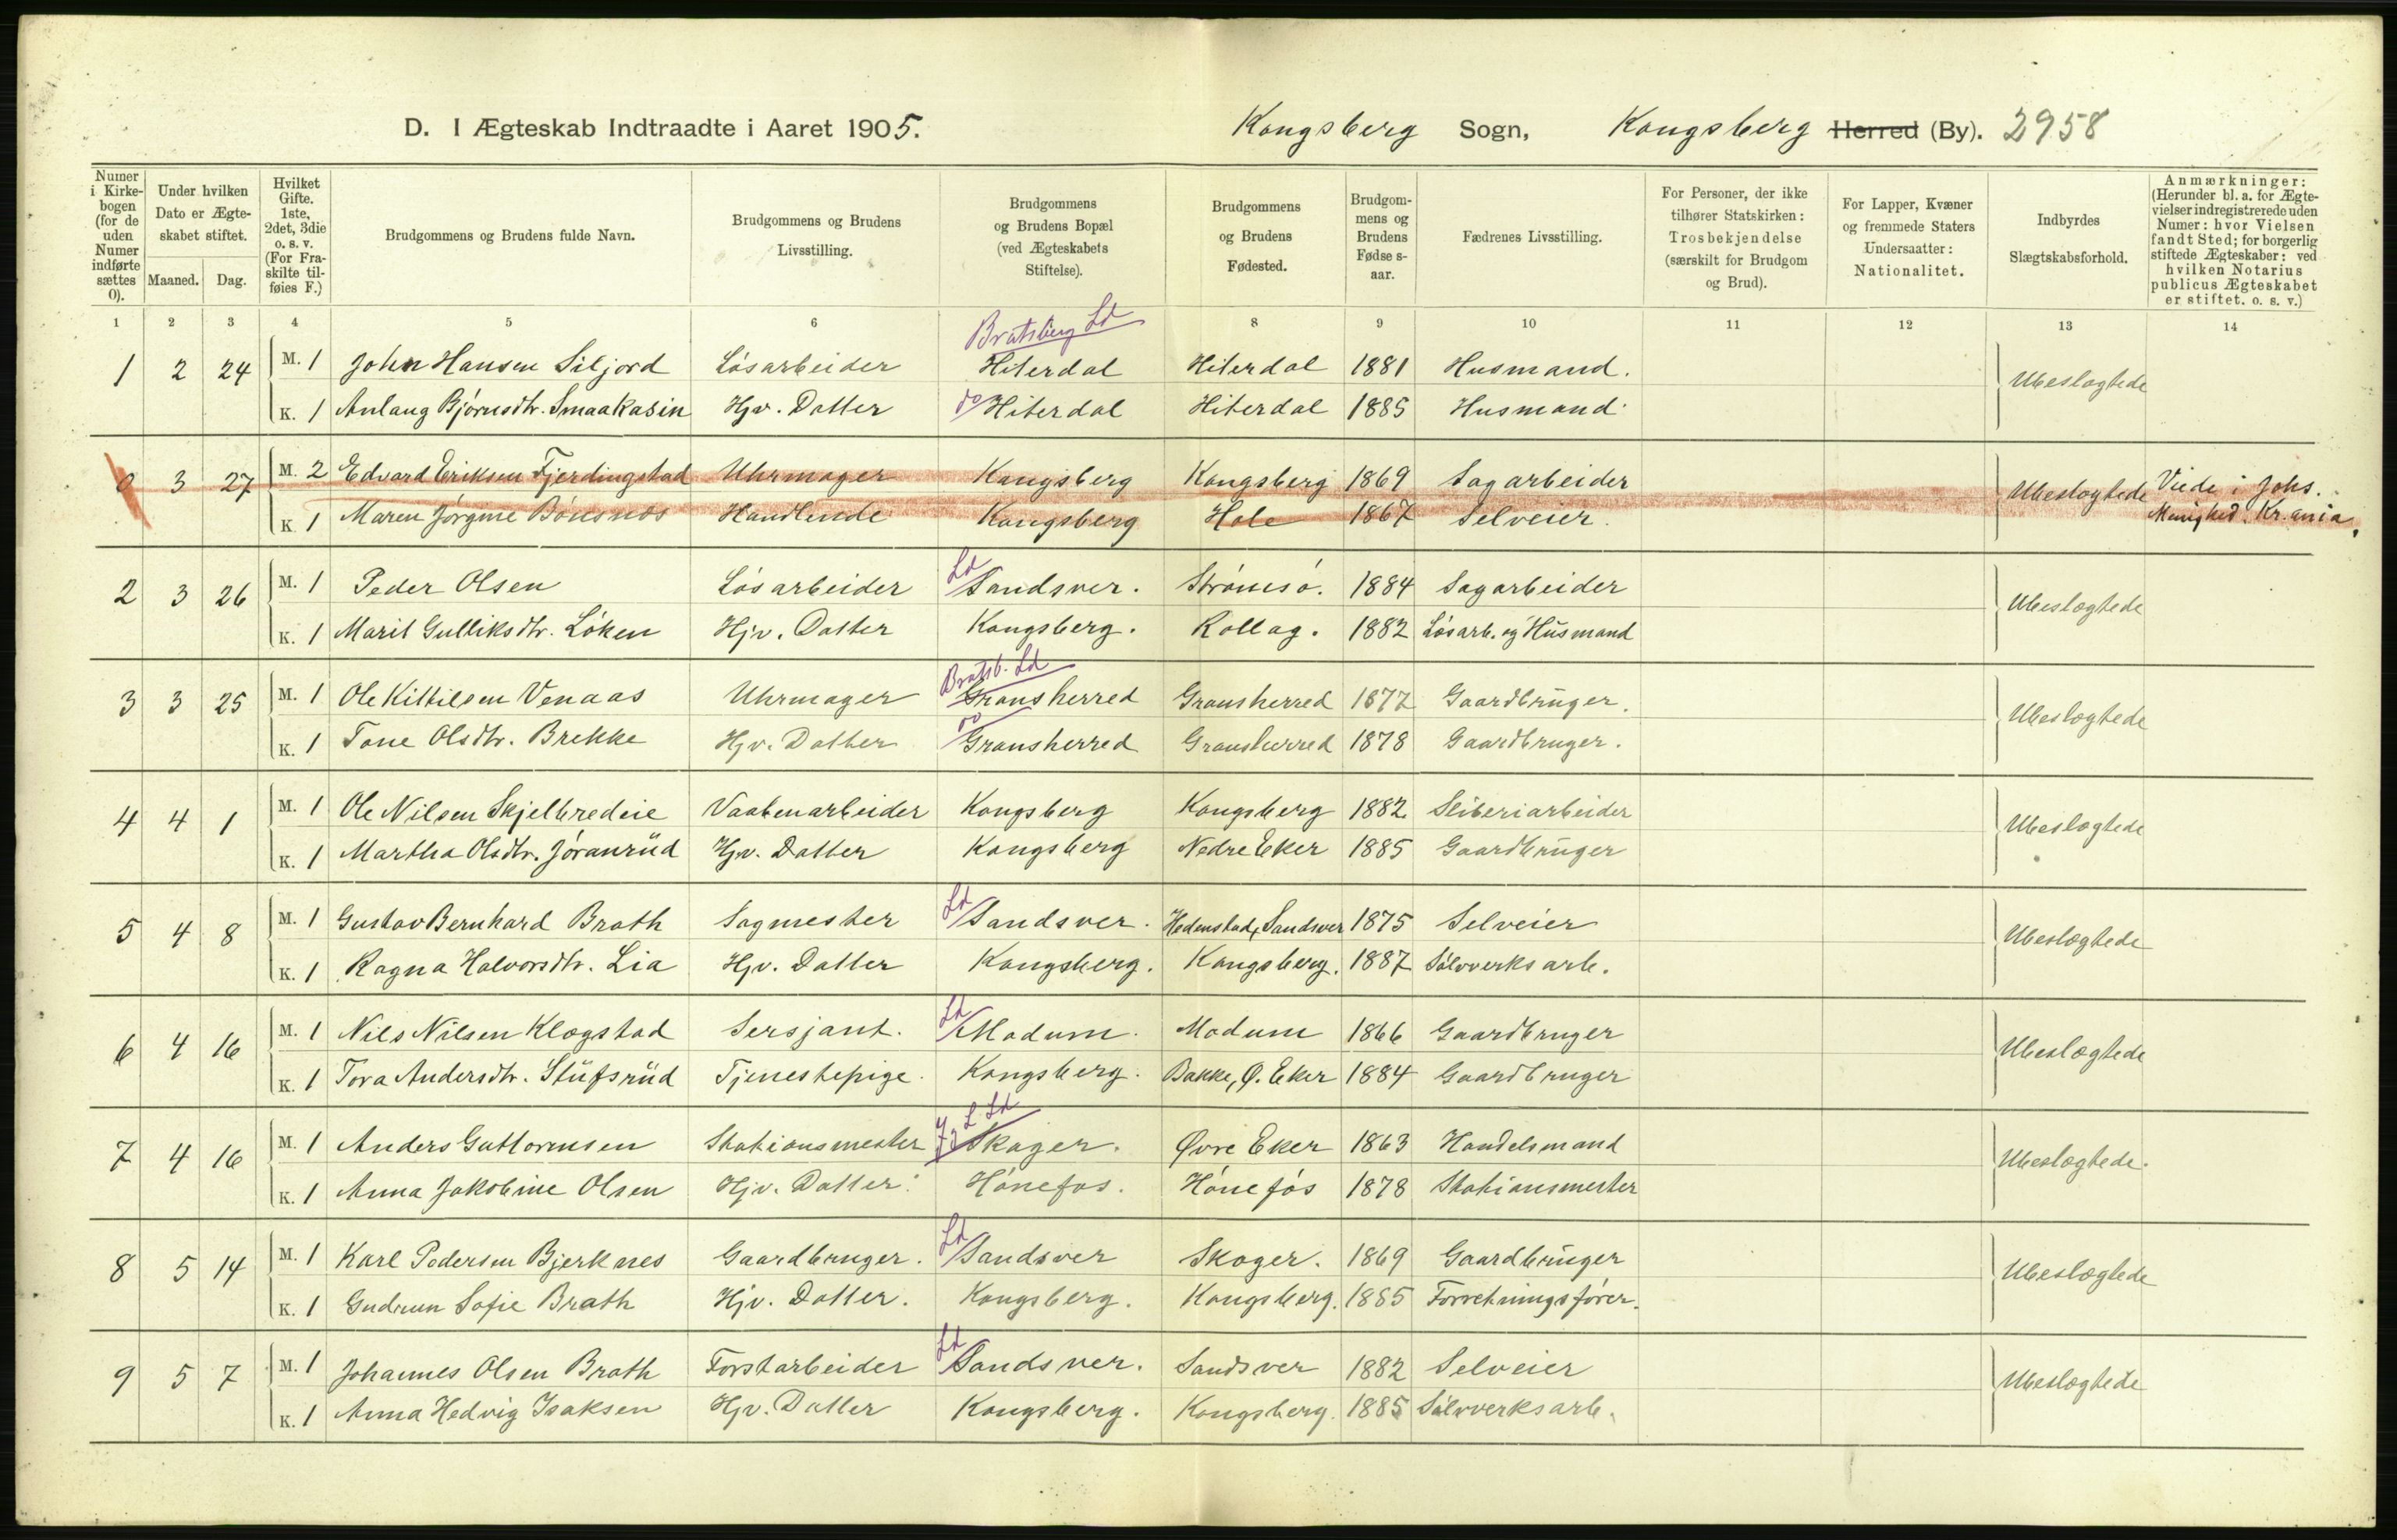 D. I Ægteskab Indtraadte i Aaret 1905. Kongsberg Sogn, Kongsberg Herred (By). 2958
Numer i Kirkebogen (for de uden Numer indførte sættes 0). Under hvilken Dato er Ægteskabet stiftet. Maaned. Dag. Hvilket Gifte. 1ste, 2det, 3die o. s. v. (For Fraskilte tilføies F.) Brudgommens og Brudens fulde Navn. Brudgommens og Brudens Livsstilling. Brudgommens og Brudens Bopæl (ved Ægteskabets Stiftelse). Brudgommens og Brudens Fødested. Brudgommens og Brudens Fødselsaar. Fædrenes Livsstilling. For Personer, der ikke tilhører Statskirken: Trosbekjendelse (særskilt for Brudgom og Brud). For Lapper, Kvæner og fremmede Staters Undersaatter: Nationalitet. Indbyrdes Slægtskabsforhold. Anmærkninger: (Herunder bl. a. for Ægtevielser indregistrerede uden Numer: hvor Vielsen fandt Sted; for borgerlig stiftede Ægteskaber: ved hvilken Notarius publicus Ægteskabet er stiftet. o. s. v.)
1 2 3 4 5 6 8 9 10 11 12 13 14
Bratsberg Ld
1 2 24 M. 1 John Hansen Siljord Løsarbeider Hiterdal Hiterdal 1881 Husmand. Ubeslægtede
K. 1 Anlaug Bjørnsdtr. Smaakasin Hjv. Datter do Hiterdal Hiterdal 1885 Husmand
0 3 27 M. 2 Edvard Eriksen Fjerdingstad Uhrmager Kongsberg Kongsberg 1869 Sagarbeider Ubeslægtede Viede i Johs.
K. 1 Maren Jørgine Bønsnes Handlende Kongsberg Hole 1867 Selveier. Menighed. Kr.ania.
2 3 26 M. 1 Peder Olsen Løsarbeider Ld Sandsver. Strømsø. 1884 Sagarbeider Ubeslægtede
K. 1 Marit Gulliksdtr. Løken Hjv. Datter Kongsberg. Rollag. 1882 Løsarb. og Husmand
Bratsb. Ld
3 3 25 M. 1 Ole Kittilsen Venaas Uhrmager Gransherred Gransherred 1877 Gaardbruger. Ubeslægtede
K. 1 Tone Olsdtr. Brekke Hjv. Datter do Gransherred Gransherred 1878 Gaardbruger.
4 4 1 M. 1 Ole Nilsen Skjelbredeie Vaabenarbeider Kongsberg Kongsberg 1882 Sliberiarbeider Ubeslægtede
K. 1 Martha Olsdtr. Jøranrud Hjv. Datter Kongsberg Nedre Eker 1885 Gaardbruger
5 4 8 M. 1 Gustav Bernhard Brath Sagmester Ld Sandsver. Hedenstad, Sandsver 1875 Selveier Ubeslægtede
K. 1 Ragna Halvorsdtr. Lia Hjv. Datter Kongsberg. Kongsberg. 1887 Sølvverksarb.
6 4 16 M. 1 Nils Nilsen Klogstad Sersjant. Ld Modum. Modum 1866 Gaardbruger Ubeslægtede
K. 1 Tora Andersdtr. Stufsrud Tjenestepige. Kongsberg. Bakke, Ø. Eker 1884 Gaardbruger
7 4 16 M. 1 Anders Guttormsen Stationsmester J L Ld Skoger. Øvre Eker 1863 Handelsmand Ubeslægtede.
K. 1 Anna Jakobine Olsen Hjv. Datter. Hønefos. Hønefós 1878 Stationsmester
8 5 14 M. 1 Karl Pedersen Bjerknes Gaardbruger. Ld Sandsver Skoger. 1869 Gaardbruger Ubeslægtede
K. 1 Gudrun Sofie Brath Hjv. Datter. Kongsberg. Kongsberg. 1885 Forretningsfører.
9 5 7 M. 1 Johannes Olsen Brath Forstarbeider Ld Sandsver. Sandsver 1882 Selveier Ubeslægtede
K. 1 Anna Hedvig Isaksen Hjv. Datter Kongsberg. Kongsberg. 1885 Sølvverksarb.